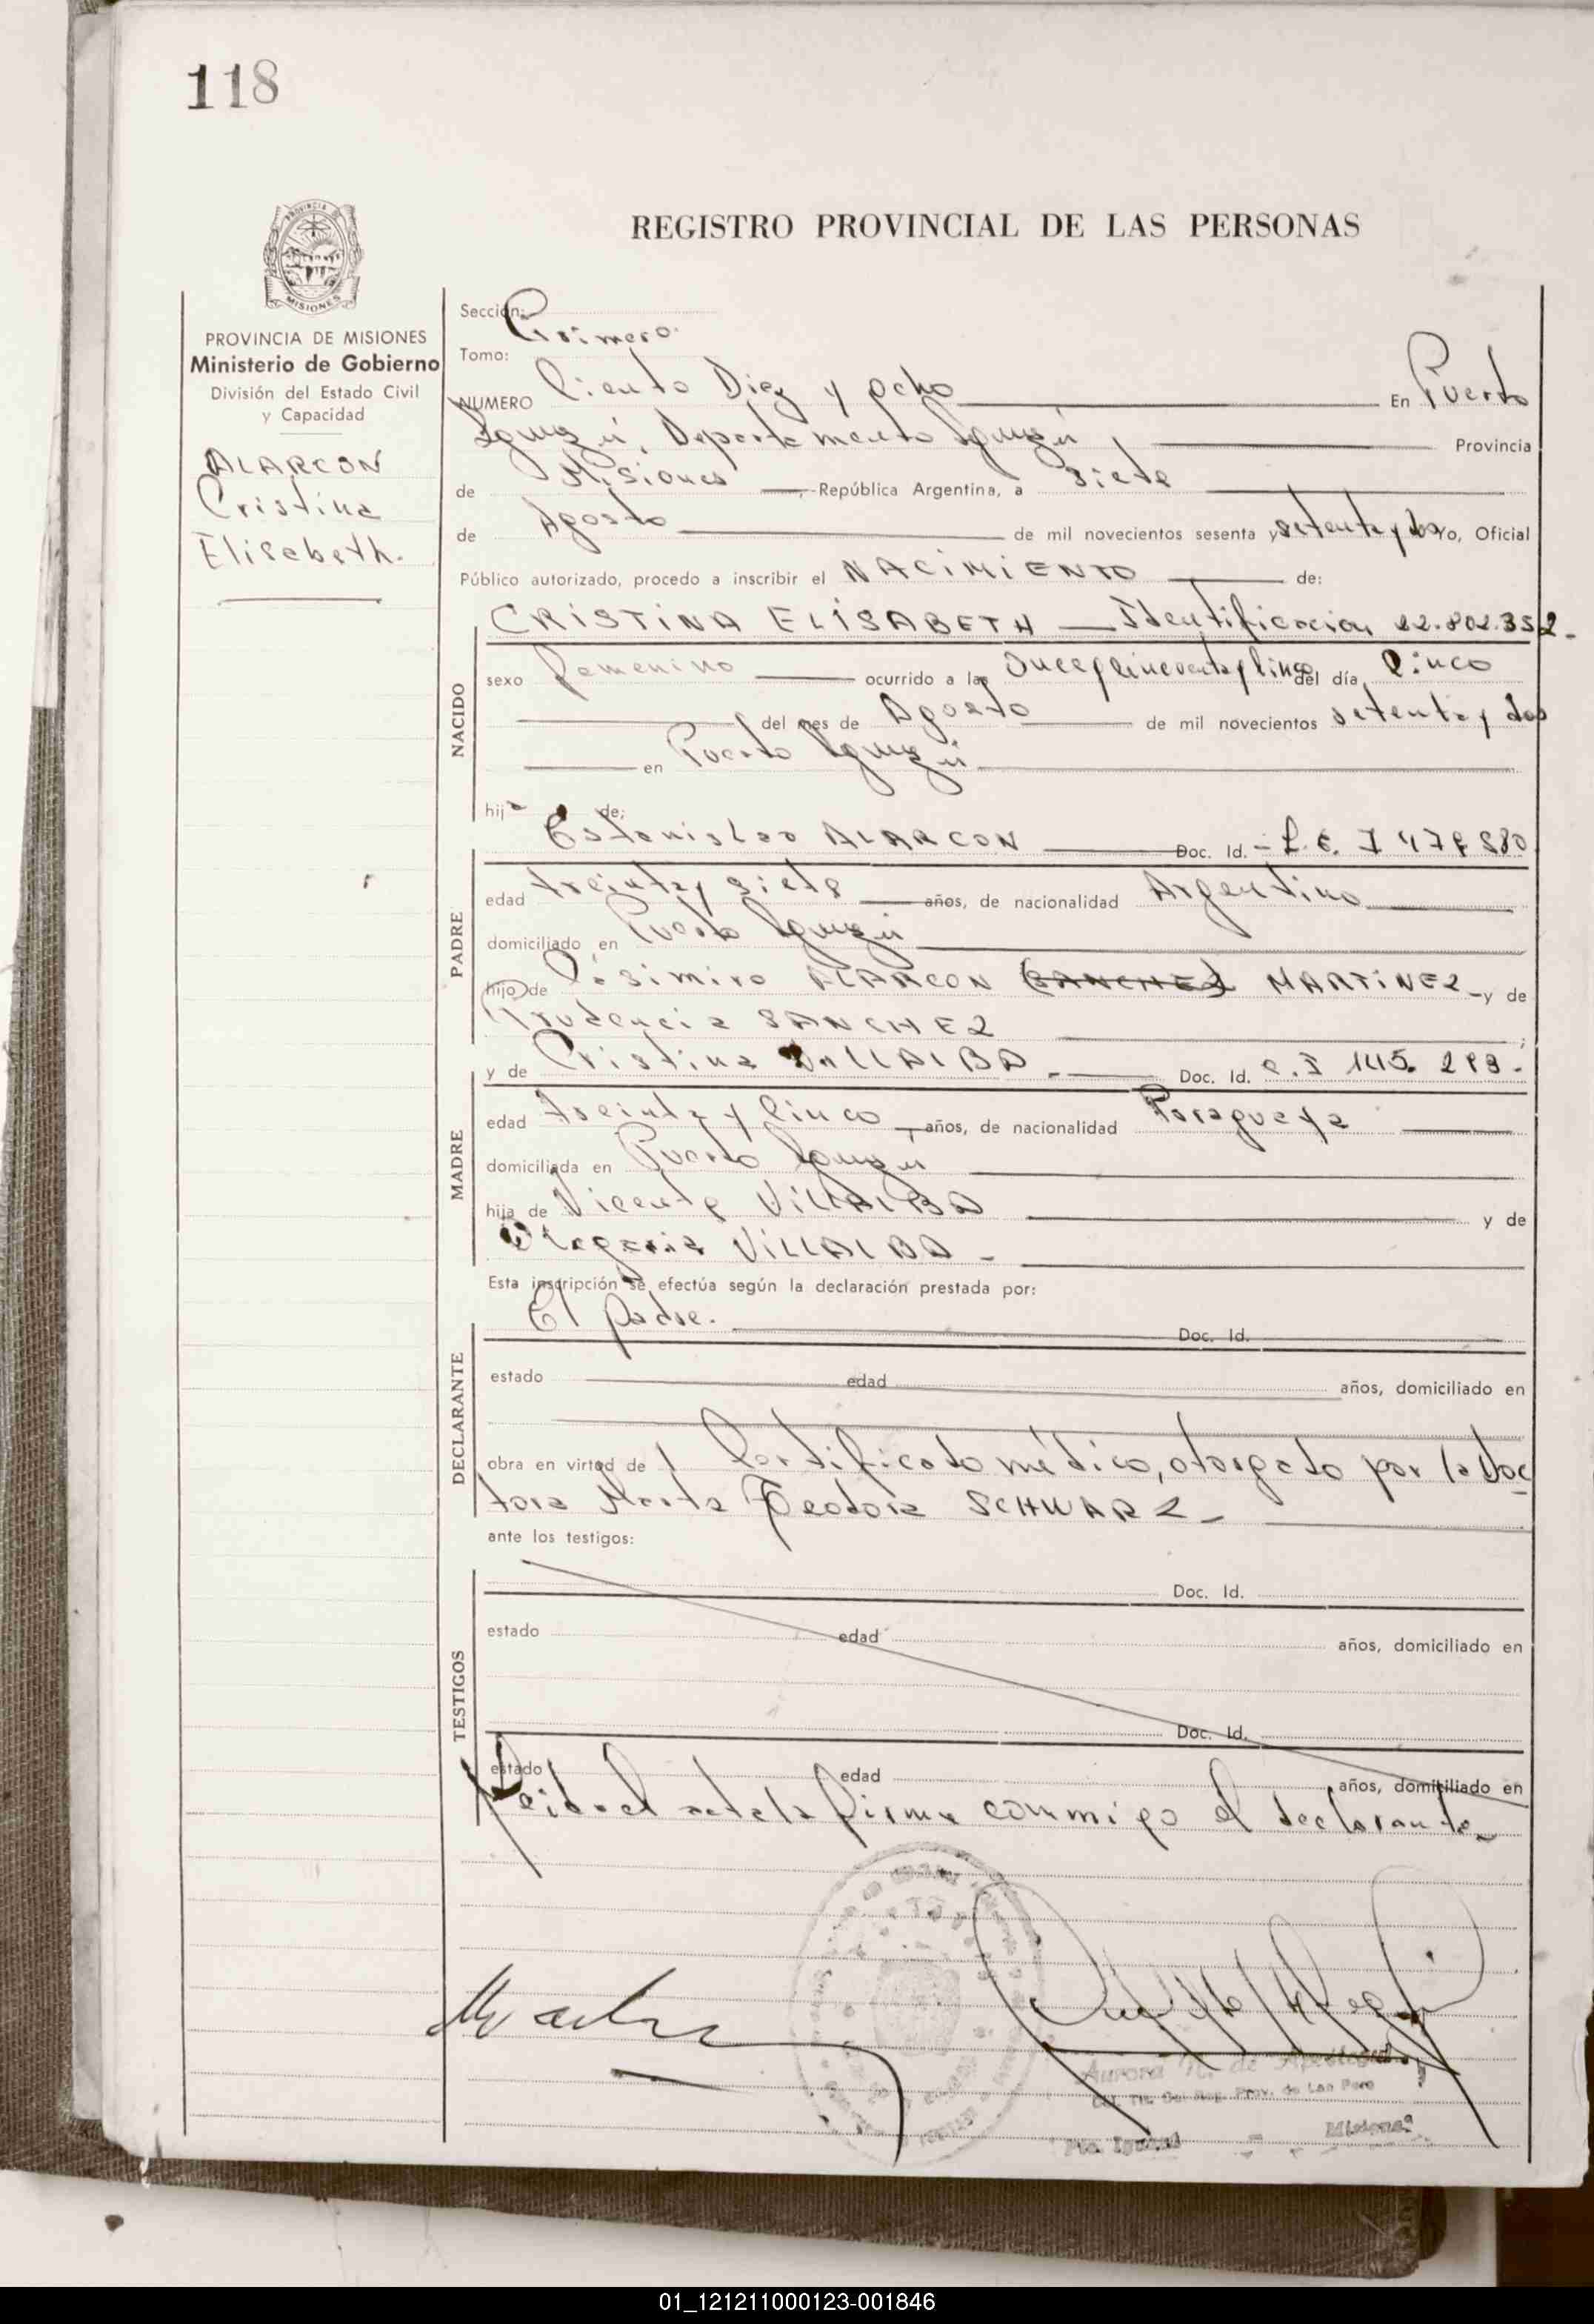 118
REGISTRO PROVINCIAL DE LAS PERSONAS
PROVINCIA DE MISIONES
Ministerio de Gobierno
División del Estado Civil
y Capacidad
ALARCON
Cristina
Elisabeth.
Sección: Primero.
Tomo:
NUMERO Ciento Diez y ocho En Puerto
Iguazú, Departamento Iguazú, Provincia
de Misiones República Argentina, a siete
de Agosto de mil novecientos sesenta y setenta y dos Yo, Oficial
Público autorizado, procedo a inscribir el NACIMIENTO de:
CRISTINA ELISABETH Identificacion 22.802.352-
NACIDO
sexo Femenino ocurrido a las Once y Cincuenta y Cinco del día Cinco
del mes de Agosto de mil novecientos setenta y dos
en Puerto Iguazú
hija de:
Estanislao ALARCON Doc. Id. - L.E. 7 478 580
PADRE
edad treinta y siete años, de nacionalidad Argentino
domiciliado en Puerto Iguazú
hijo de Casimiro ALARCON (SANCHEZ) MARTINEZ y de
Prudencia SANCHEZ
y de Cristina VILLALBA Doc. Id. C.I 145.
MADRE
edad treinta y Cinco años, de nacionalidad Paraguaya
domiciliada en Puerto Iguazú
hija de Vicente VILLALBA y de
Olegaria VILLALBA
Esta inscripción se efectúa según la declaración prestada por:
El padre. Doc. Id.
DECLARANTE
estado edad años, domiciliado en
obra en virtud de Certificado médico, otorgado por la Doc
tora Marta Teodora SCHWARZ
ante los testigos:
Doc. Id.
TESTIGOS
estado edad años, domiciliado en
Doc. Id.
estado edad años, domiciliado en
Leida el acta la firma conmigo el declarante
Aurora de
Prov. de Las Pers
Pto. Iguazú - Misiones
01_121211000123-001846